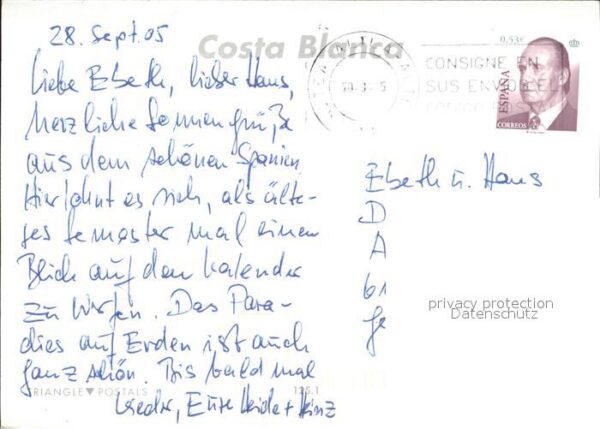 28. Sept. 05
Costa Blanca
Liebe Ebeth, lieber Hans,
herzliche Sonnengrüße
aus dem schönen Spanien.
Hier lohnt es sich, als älte-
res Semester mal einen
Blick auf den Kalender
zu werfen. Das Para-
dies auf Erden ist auch
ganz schön. Bis bald mal
wieder, Eure Heide + Heinz
TRIANGLE ▼ POSTALS
125.1
0,53€
CONSIGNE EN
SUS ENVIOS EL
ESPAÑA
CORREOS
Ebeth u. Hans
D
A
privacy protection
Datenschutz